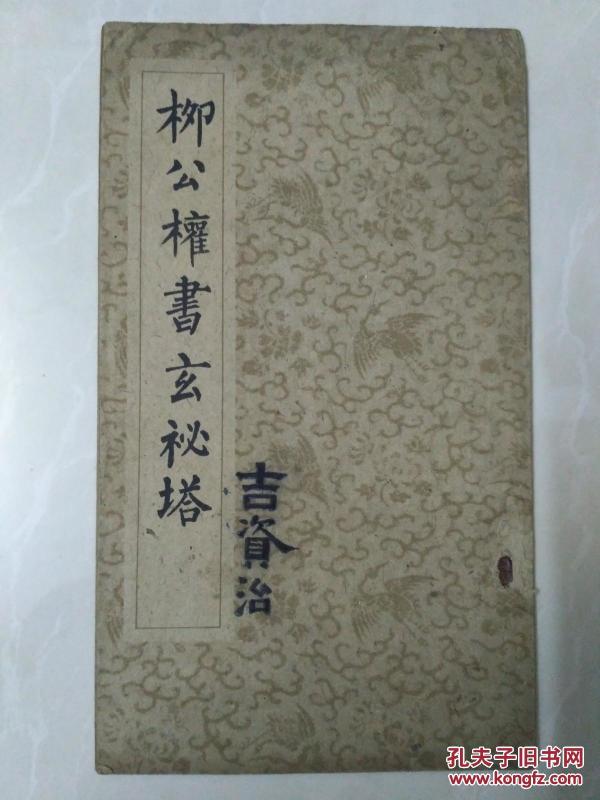 柳公權書玄祕塔
吉資治
孔夫子旧书网
www.kongfz.com